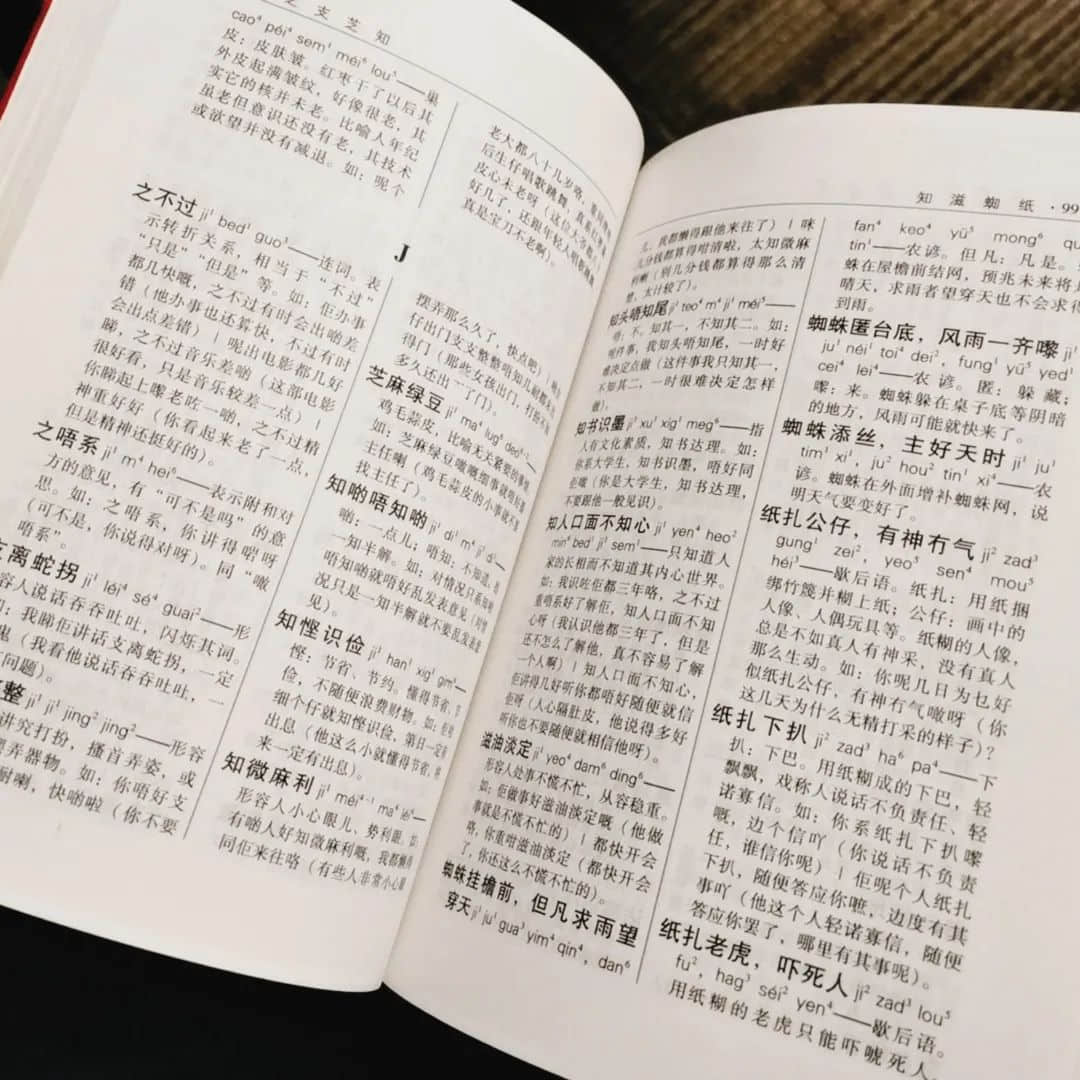 之 支 芝 知
cao⁴ péi⁴ sem¹ méi⁶ lou⁵——巢
皮：皮肤皱。红枣干了以后其
外皮起满皱纹，好像很老，其
实它的核并未老。比喻人年纪
虽老但意识还没有老，其技术
或欲望并没有减退。如：呢个
老大都八十几岁咯，重同啲
后生仔唱歌跳舞，真系红枣
皮心未老呀
好几了，还跟年轻人唱歌跳舞
真是宝刀不老啊）。
J
之不过 ji¹ bed¹ guo³——连词。表
示转折关系，相当于“不过”
“只是”“但是”等。如：佢办事
都几快嘅，之不过有时会出啲差
错（他办事也还算快，不过有时
会出点差错）｜呢出电影都几好
睇，之不过音乐差啲（这部电影
很好看，只是音乐较差一点）｜
你睇起上嚟老咗一啲，之不过精
神重好好（你看起来老了一点，
但是精神还挺好的）。
之唔系 ji¹ m⁴ hei⁶——表示附和对
方的意见，有“可不是吗”的意
思。如：之唔系，你讲得啱呀
（可不是，你说得对呀）。同“噉
唔系”。
离蛇拐 ji¹ léi⁴ sé⁴ guai²——形
容人说话吞吞吐吐，闪烁其词。
：我睇佢讲话支离蛇拐，一定
鬼（我看他说话吞吞吐吐，一
问题）。
整 ji¹ ji¹ jing² jing²——形容
讲究打扮，搔首弄姿，或
弄器物。如：你唔好支
喇，快啲啦（你不要
摆弄那么久了，快点吧）｜
仔出门支支整整唔知几耐都未出
得门（那些女孩出门，打扮不知
多久还出不了门）。
芝麻绿豆 ji¹ ma⁴ lug⁶ deo⁶⁻²——
鸡毛蒜皮，比喻无关紧要的事情。
如：芝麻绿豆嘅嘢细事就唔好
主任喇（鸡毛蒜皮的小事就不要
找主任了）。
知啲唔知啲 ji¹ di¹ m⁴ ji¹ di¹——
啲：一点儿；唔知：不知道。指
一知半解。如：对情况只系知啲
唔知啲就唔好乱发表意见（对情
况只是一知半解就不要乱发表意
见）。
知悭识俭 ji¹ han¹ xig¹ gim⁶——
悭：节省、节约。懂得节省、节
俭，不随便浪费财物。如：佢咁
细个仔就知悭识俭，第日一定有
出息（他这么小就懂得节省，将
来一定有出息）。
知微麻利 ji¹ méi⁴⁻¹ ma⁴ léi⁶——
形容人小心眼儿、势利眼。如：
有啲人好知微麻利嘅，我都懒得
同佢来往咯（有些人非常小心眼
知 滋 蜘 纸 · 99
儿，我都懒得跟他来往了）｜咪
几分钱都算得咁清啦，太知微麻
利喇（别几分钱都算得那么清
楚，太计较了）。
知头唔知尾 ji¹ teo⁴ m⁴ ji¹ méi⁵——
不知其一，不知其二。如：
呢件事，我知头唔知尾，一时好
难决定点做（这件事我只知其一，
不知其二，一时很难决定怎样
做）。
知书识墨 ji¹ xu¹ xig¹ meg⁶——指
人有文化素质，知书达理。如：
佢系大学生，知书识墨，唔好同
佢哦（你是大学生，知书达理，
不要跟他一般见识）。
知人口面不知心 ji¹ yen⁴ heo²
min⁶ bed¹ ji¹ sem¹——只知道人
家的长相而不知道其内心世界。
如：我识咗佢都三年咯，之不过
重唔系好了解佢，知人口面不知
心呀（我认识他都三年了，但是
还不怎么了解他，真不容易了解
一个人啊）｜知人口面不知心，
佢讲得几好听你都唔好随便就信
佢呀（人心隔肚皮，他说得多好
听你也不要随便就相信他呀）。
滋油淡定 ji¹ yeo⁴ dam⁶ ding⁶——
形容人处事不慌不忙，从容稳重。
如：佢做事好滋油淡定嘅（他做
事就是不慌不忙的）｜都快开会
咯，你重咁滋油淡定（都快开会
了，你还这么不慌不忙的）。
蜘蛛挂檐前，但凡求雨望
穿天 ji¹ ju¹ gua³ yim⁴ qin⁴，dan⁶
fan⁴ keo⁴ yü⁵ mong⁶
tin¹——农谚。但凡：凡是。
蛛在屋檐前结网，预兆未来将
晴天，求雨者望穿天也不会求得
到雨。
蜘蛛匿台底，风雨一齐嚟 ji¹
ju¹ néi¹ toi⁴ dei²，fung¹ yü⁵ yed¹
cei⁴ lei⁴——农谚。匿：躲藏；
嚟：来。蜘蛛躲在桌子底等阴暗
的地方，风雨可能就快来了。
蜘蛛添丝，主好天时 ji¹ ju¹
tim¹ xi¹，ju² hou² tin¹ xi⁴——农
谚。蜘蛛在外面增补蜘蛛网，说
明天气要变好了。
纸扎公仔，有神冇气 ji² zad³
gung¹ zei²，yeo⁵ sen⁴ mou⁵
héi³——歇后语。纸扎：用纸捆
绑竹篾并糊上纸；公仔：画中的
人像、人偶玩具等。纸糊的人像，
总是不如真人有神采，没有真人
那么生动。如：你呢几日为乜好
似纸扎公仔，有神冇气噉呀（你
这几天为什么无精打采的样子）？
纸扎下扒 ji² zad³ ha⁶ pa⁴——下
扒：下巴。用纸糊成的下巴，轻
飘飘，戏称人说话不负责任、轻
诺寡信。如：你系纸扎下扒嚟
嘅，边个信吖（你说话不负责
任，谁信你呢）｜佢呢个人纸扎
下扒，随便答应你嘅，边度有其
事吖（他这个人轻诺寡信，随便
答应你罢了，哪里有其事呢）。
纸扎老虎，吓死人 ji² zad³ lou⁵
fu²，hag³ séi² yen⁴——歇后语。
用纸糊的老虎只能吓唬死人，